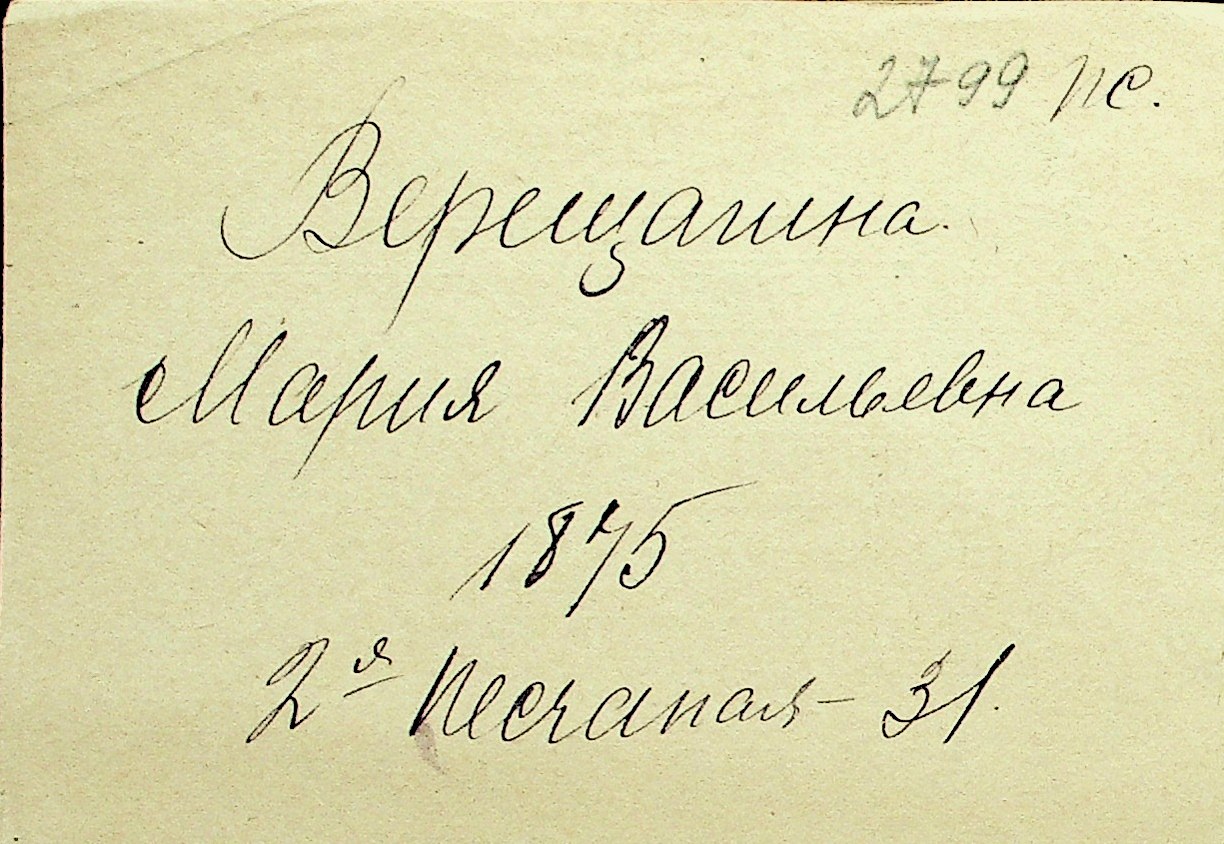 2799 пс.
Верещагина.
Мария Васильевна
1875
2я Песчаная - 31.